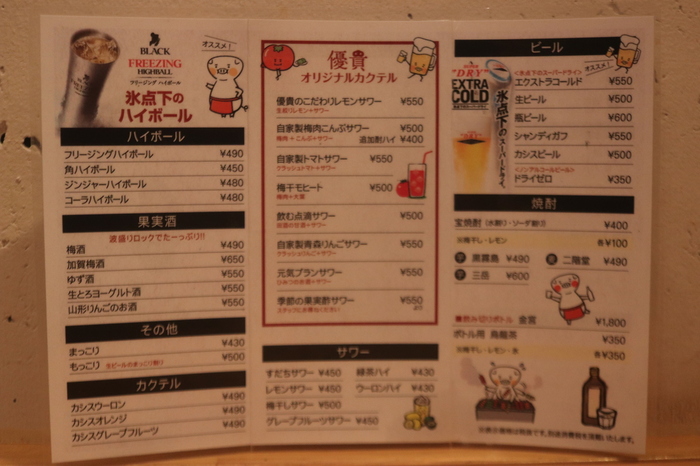 BLACK
FREEZING
HIGHBALL
フリージング ハイボール
オススメ!
氷点下の
ハイボール
ハイボール
フリージングハイボール ¥490
角ハイボール ¥450
ジンジャーハイボール ¥480
コーラハイボール ¥480
果実酒
波盛りロックでたーっぷり!!
梅酒 ¥490
加賀梅酒 ¥650
ゆず酒 ¥550
生とろヨーグルト酒 ¥550
山形りんごのお酒 ¥550
その他
まっこり ¥430
もっこり 生ビールのまっこり割り ¥500
カクテル
カシスウーロン ¥490
カシスオレンジ ¥490
カシスグレープフルーツ ¥490
優貴
オリジナルカクテル
優貴のこだわりレモンサワー ¥550
生絞りレモン+サワー
自家製梅肉こんぶサワー ¥500
梅肉+こんぶ+サワー 追加酎ハイ ¥400
自家製トマトサワー ¥550
クラッシュトマト+サワー
梅干モヒート ¥500
梅肉+大葉
飲む点滴サワー ¥500
自家製青森りんごサワー ¥550
クラッシュりんご+サワー
元気プランサワー ¥550
ひみつのお酒+サワー
季節の果実酢サワー ¥550
スタッフにお尋ねください
サワー
すだちサワー ¥450
緑茶ハイ ¥430
レモンサワー ¥450
ウーロンハイ ¥430
梅干しサワー ¥500
グレープフルーツサワー ¥450
ビール
"DRY"
EXTRA
COLD
氷点下のスーパードライ。
オススメ!
<氷点下のスーパードライ>
エクストラコールド ¥550
生ビール ¥500
瓶ビール ¥600
シャンディガフ ¥550
カシスビール ¥550
<ノンアルコールビール>
ドライゼロ ¥350
焼酎
宝焼酎 (水割り・ソーダ割り) ¥400
※梅干し・レモン 各¥100
芋 黒霧島 ¥490
麦 二階堂 ¥490
芋 三岳 ¥600
■飲み切りボトル 金宮 ¥1,800
ボトル用 烏龍茶 ¥350
※梅干し・レモン・氷 各¥350
※表示価格は税抜です。別途消費税を頂戴いたします。